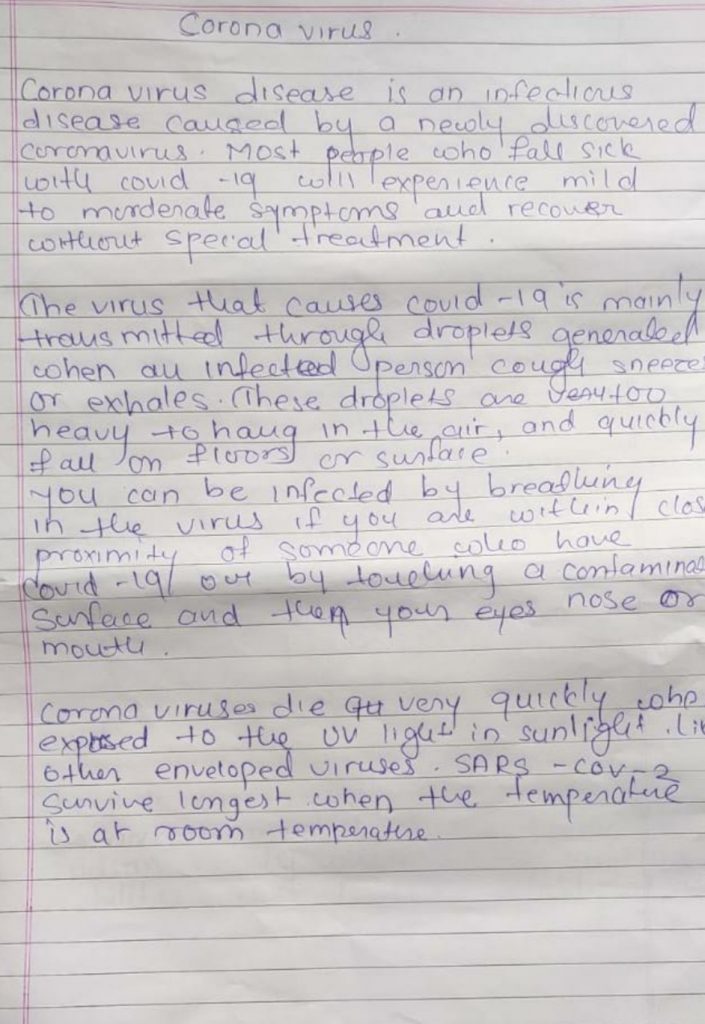 Corona virus.
Corona virus disease is an infectious
disease caused by a newly discovered
coronavirus. Most people who fall sick
with covid -19 will experience mild
to morderate symptoms and recover
without special treatment.
The virus that causes covid -19 is mainly
transmitted through droplets generated
when an infected person cough sneeze
or exhales. These droplets are very too
heavy to hang in the air, and quickly
fall on floors or surface.
you can be infected by breathing
in the virus if you are within clos
proximity of someone who have
covid -19/ our by touching a contamina
surface and then your eyes nose or
mouth.
Corona viruses die very quickly whe
exposed to the UV light in sunlight. Li
other enveloped viruses. SARS -COV-2
survive longest when the temperature
is at room temperature.